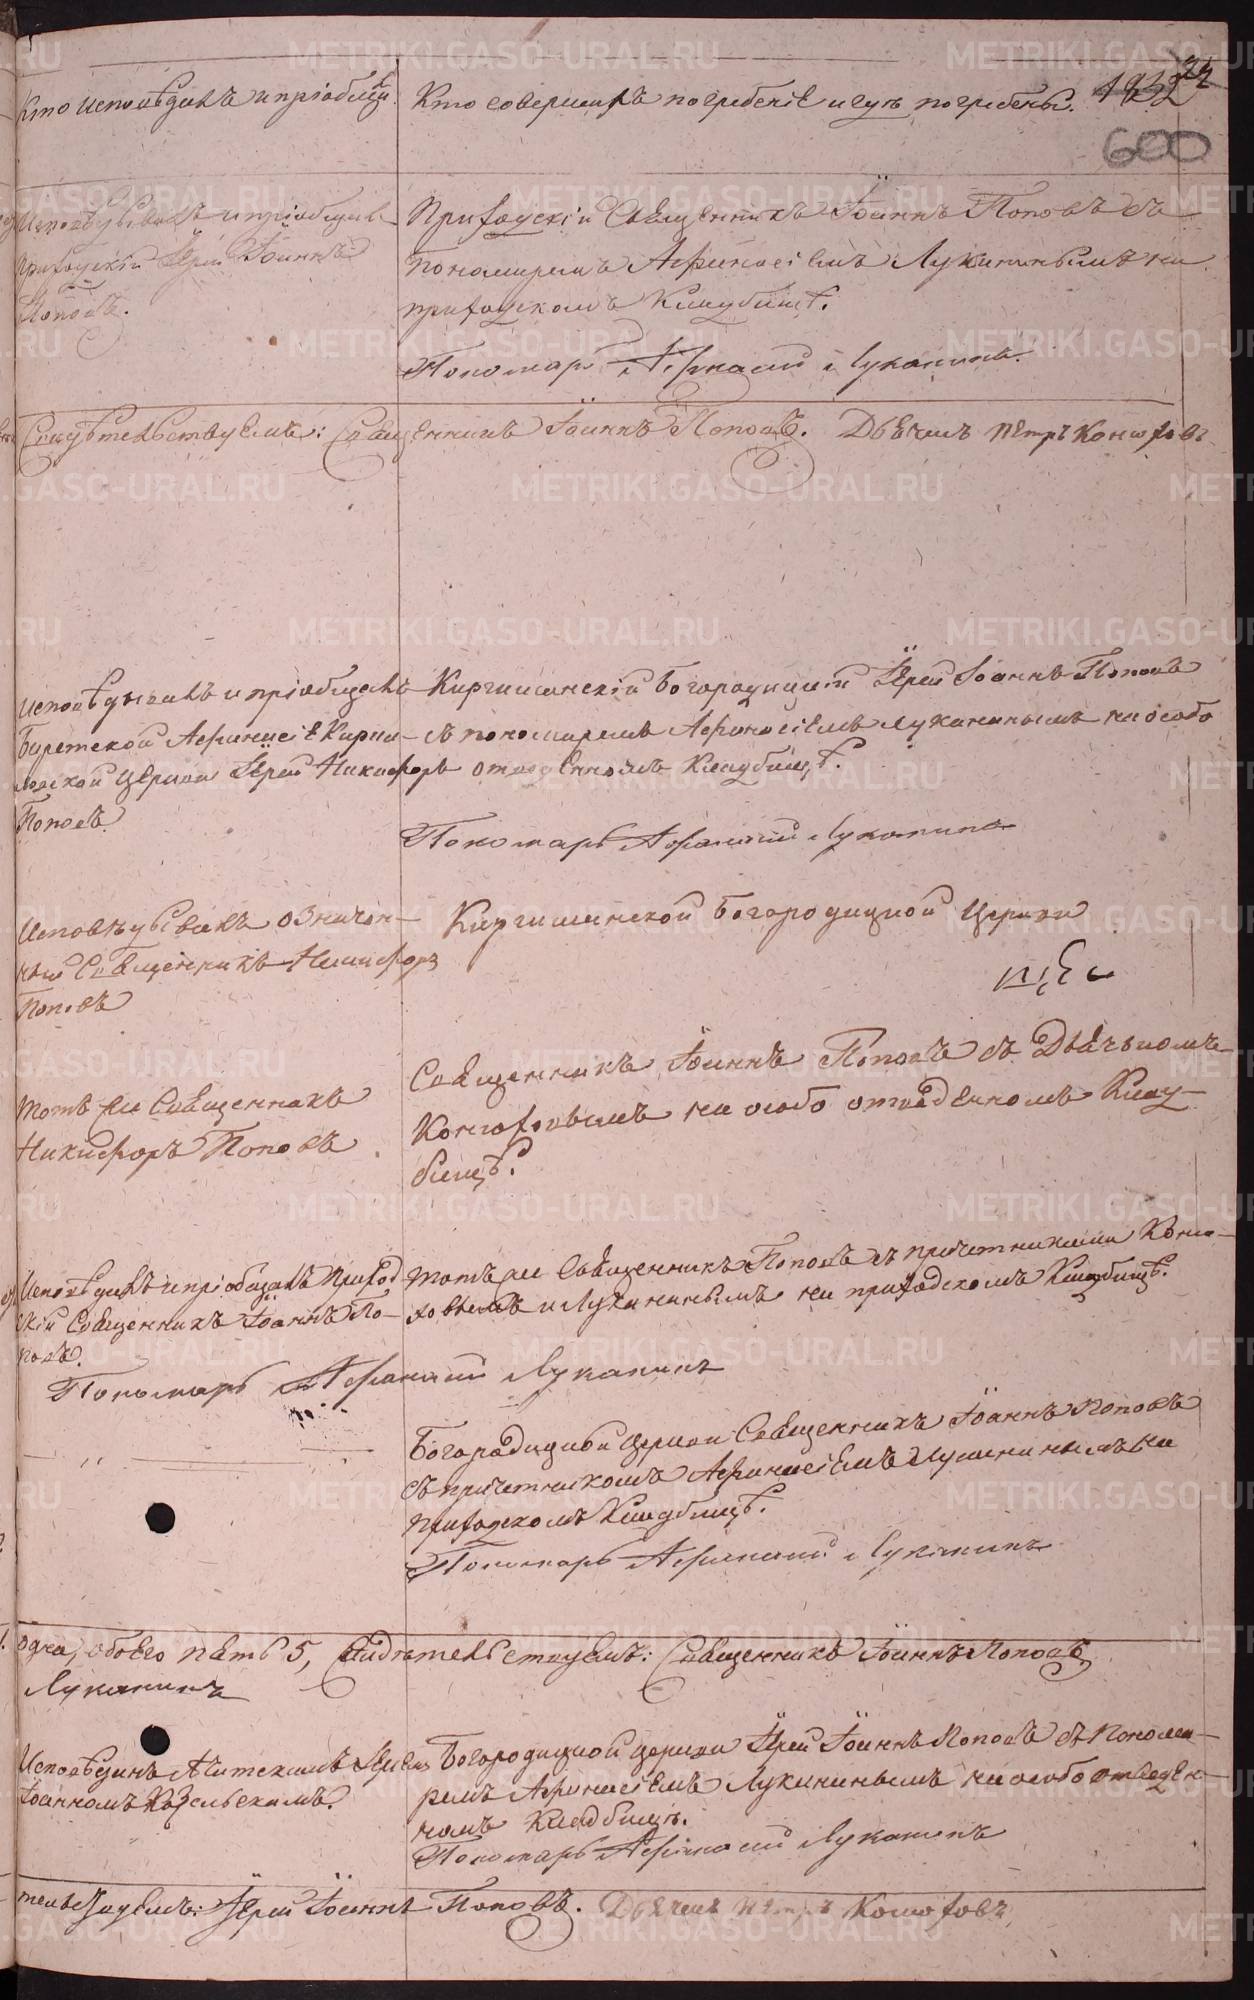 Кто исповѣдалъ и пріобщ.
Кто совершилъ погребеніе и гдѣ погребены.
22
600
Исповѣдывалъ и пріобщилъ
приходскій Іерей Іоаннъ
Поповъ.
Приходскій Священникъ Іоаннъ Поповъ съ
пономаремъ Афанасіемъ Луканинымъ на
приходскомъ Кладбищѣ.
Пономарь Афанасій Луканинъ.
Свидѣтельствуемъ: Священникъ Іоаннъ Поповъ. Дьячекъ Петръ Конюховъ
Исповѣдывалъ и пріобщалъ
Афанасіе Кирил-
ловской церкви Іерей Никифоръ
Поповъ
Киргишанскій Богородицкій Іерей Іоаннъ Поповъ
съ пономаремъ Афанасіемъ Луканинымъ на особо
отведенномъ Кладбищѣ.
Пономарь Афанасій Луканинъ
Исповѣдывалъ означен-
ный Священникъ Никифоръ
Поповъ
Киргишанской Богородицкой Церкви
Тотъ же Священникъ
Никифоръ Поповъ
Священникъ Іоаннъ Поповъ съ Дьячькомъ
Конюховымъ на особо отведенномъ Клад-
бищѣ.
Исповѣдалъ и пріобщалъ приход
скій Священникъ Іоаннъ По-
повъ.
Тотъ же Священникъ Поповъ съ причетниками Коню-
ховымъ и Луканинымъ на приходскомъ Кладбищѣ.
Пономарь Афанасій Луканинъ
Богородицкой церкви Священникъ Іоаннъ Поповъ
съ причетникомъ Афанасіемъ Луканинымъ на
приходскомъ Кладбищѣ.
Пономарь Афанасій Луканинъ
одна, обоего пять 5, Свидѣтельствуемъ: Священникъ Іоаннъ Поповъ
Луканинъ
Исповѣданъ Ачитскимъ Іереемъ
Іоанномъ Козельскимъ.
Богородицкой церкви Іерей Іоаннъ Поповъ съ Понома-
ремъ Афанасіемъ Луканинымъ на особо отведен-
номъ Кладбищѣ.
Пономарь Афанасій Луканинъ
Іерей Іоаннъ Поповъ. Дьячекъ Петръ Конюховъ
METRIKI.GASO-URAL.RU